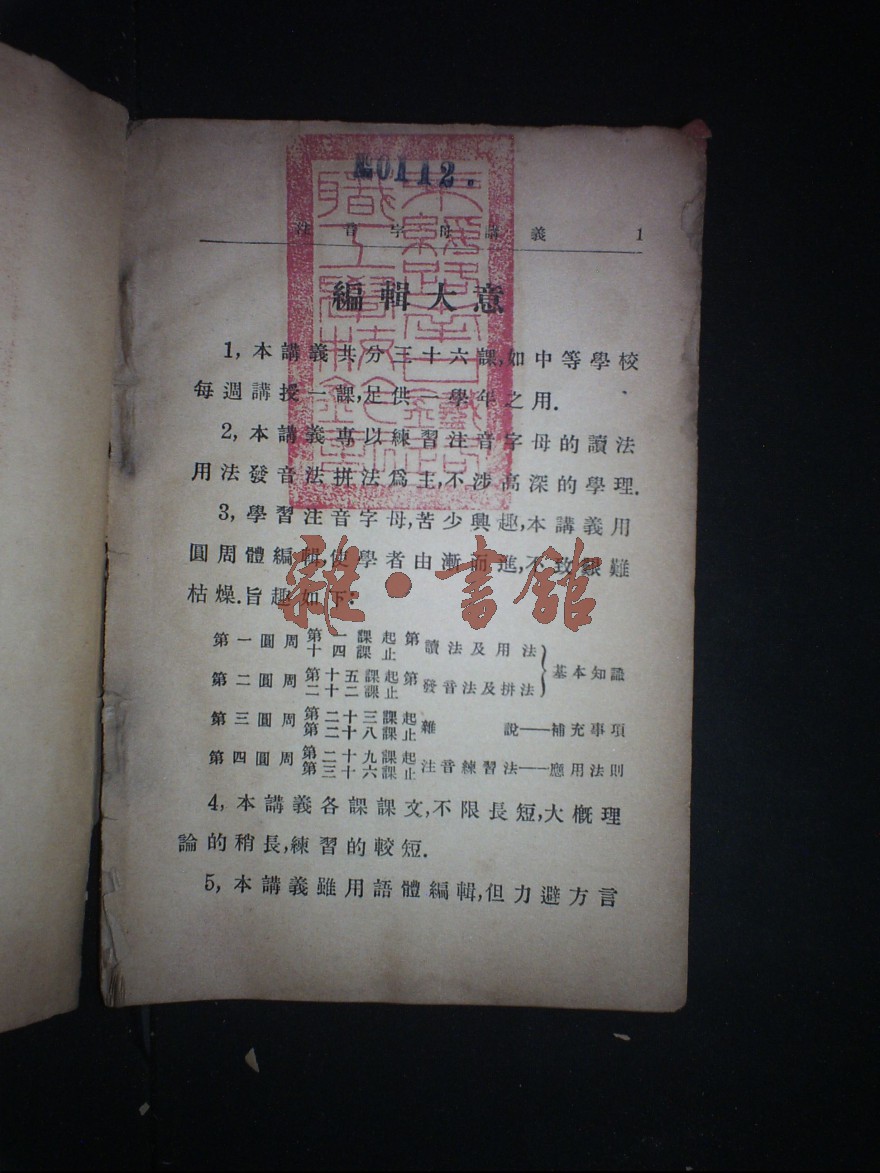 №0112.
注音字母講義 1
編輯大意
1,本講義共分三十六課,如中等學校
每週講授一課,足供一學年之用.
2,本講義專以練習注音字母的讀法
用法發音法拼法爲主,不涉高深的學理.
3,學習注音字母,苦少興趣,本講義用
圓周體編輯,使學者由漸而進,不致艱難
枯燥.旨趣如下:
第一圓周 第一課起第十四課止 讀法及用法
第二圓周 第十五課起第二十二課止 發音法及拼法 基本知識
第三圓周 第二十三課起第二十八課止 雜說——補充事項
第四圓周 第二十九課起第三十六課止 注音練習法——應用法則
4,本講義各課課文,不限長短,大槪理
論的稍長,練習的較短.
5,本講義雖用語體編輯,但力避方言
雜·書館